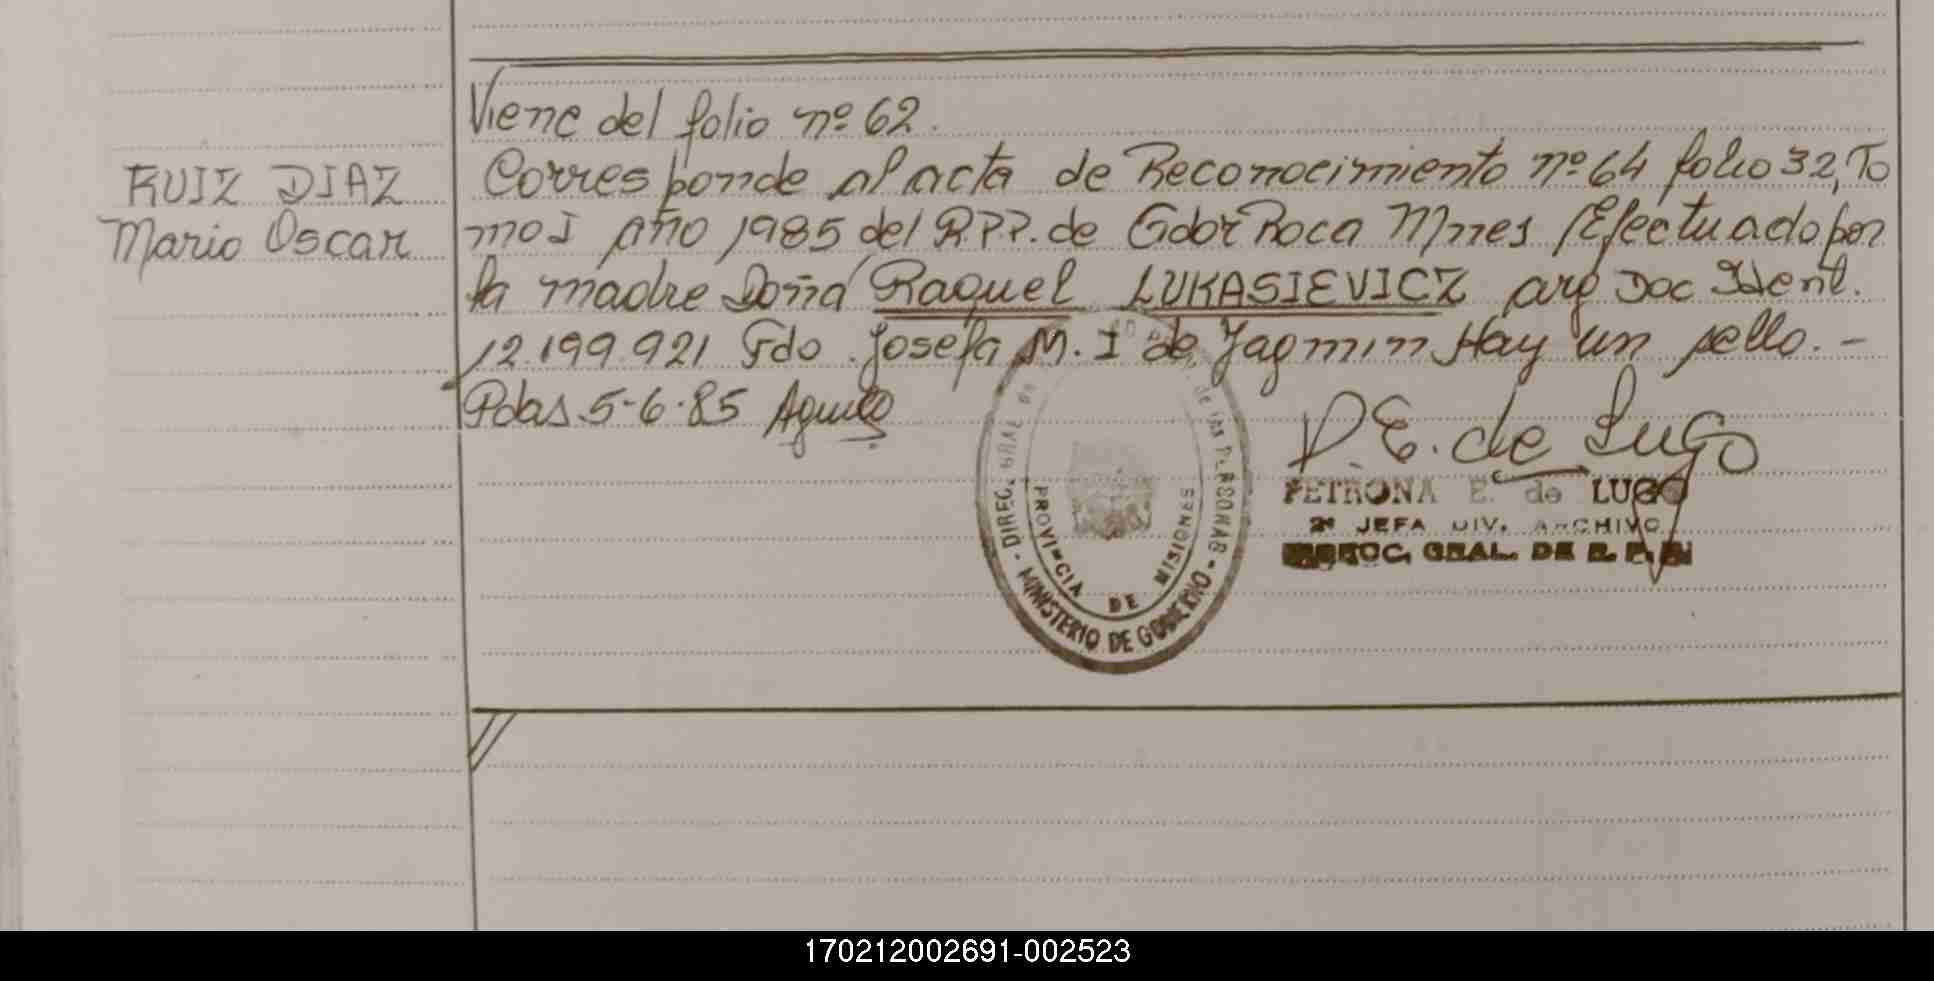 Viene del folio nº 62.
RUIZ DIAZ
Mario Oscar
Corresponde al acta de Reconocimiento nº 64 folio 32, To
mo I año 1985 del R.P.P. de Gdor Roca Mnes Efectuado por
la madre Doña Raquel LUKASIEVICZ arg Doc Ident.
12.199.921 Fdo. Josefa M. I de Jagmin Hay un sello. -
Pdas. 5-6-85
P. E. de Lugo
PETRONA E. de LUGO
2ª JEFA DIV. ARCHIVO
DIREC. GRAL. DE R. P. P.
DIREC. GRAL de las PERSONAS
PROVINCIA DE MISIONES
MINISTERIO DE GOBIERNO
170212002691-002523